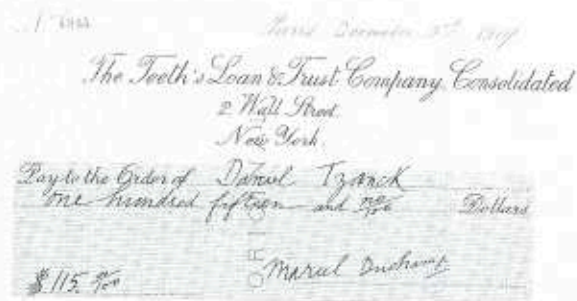 Paris December 3rd 1919
The Teeth's Loan & Trust Company, Consolidated
2 Wall Street.
New York.
Pay to the Order of Daniel Tzanck
one hundred fifteen and no/100 Dollars
$115. no/100 Marcel Duchamp